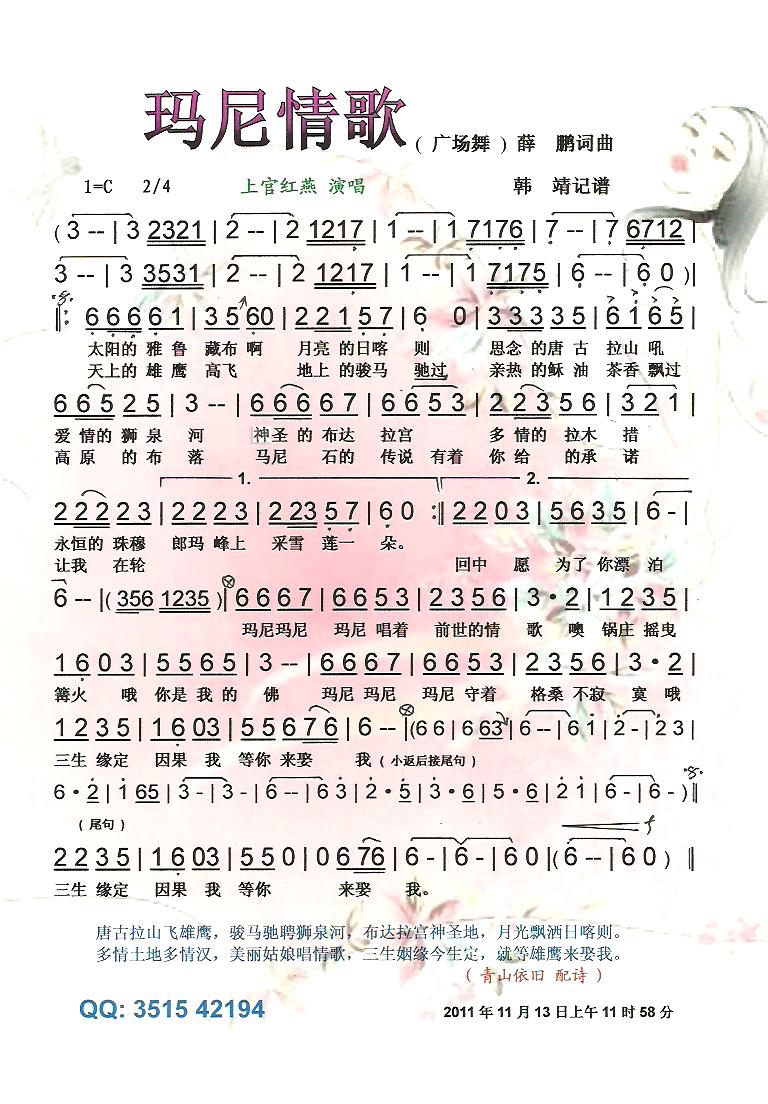 玛尼情歌 ( 广场舞 ) 薛 鹏词曲
1=C 2/4 上官红燕 演唱 韩 靖记谱
( 3 -- | 3 2321 | 2 -- | 2 1217 | 1 -- | 1 7176 | 7 -- | 7 6712 |
3 -- | 3 3531 | 2 -- | 2 1217 | 1 -- | 1 7175 | 6 -- | 6 0 )|
‖: 6 6 6 6 1 | 3 5 6 0 | 2 2 1 5 7 | 6 0 | 3 3 3 3 5 | 6 1 6 5 |
太阳的 雅 鲁 藏布 啊 月亮 的日喀 则 思念 的唐 古 拉山 吼
天上的 雄 鹰 高飞 地上 的骏马 驰过 亲热 的稣 油 茶香 飘过
6 6 5 2 5 | 3 -- | 6 6 6 6 7 | 6 6 5 3 | 2 2 3 5 6 | 3 2 1 |
爱 情的 狮 泉 河 神圣 的 布达 拉宫 多 情的 拉木 措
高 原 的 布 落 马尼 石的 传说 有着 你 给 的承 诺
1. 2.
2 2 2 2 3 | 2 2 2 3 | 2 23 5 7 | 6 0 :‖ 2 2 0 3 | 5 6 3 5 | 6 - |
永恒的 珠穆 郎玛 峰上 采雪 莲一 朵。
让我 在轮 回中 愿 为了 你漂 泊
6 -- |( 356 1235 )| 6 6 6 7 | 6 6 5 3 | 2 3 5 6 | 3 • 2 | 1 2 3 5 |
玛尼玛尼 玛尼 唱着 前世的情 歌 噢 锅庄 摇曳
1 6 0 3 | 5 5 6 5 | 3 -- | 6 6 6 7 | 6 6 5 3 | 2 3 5 6 | 3 • 2 |
篝火 哦 你是 我 的 佛 玛尼 玛尼 玛尼 守着 格桑 不寂 寞 哦
1 2 3 5 | 1 6 03 | 5 5 6 7 6 | 6 -- |(6 6 | 6 63 | 6 -- | 6 1 | 2 - | 2 3 |
三生 缘定 因果 我 等你 来娶 我 ( 小返后接尾句 )
6 • 2 | 1 65 | 3 - | 3 - | 6 -- | 6 3 | 2 • 5 | 3 • 6 | 5 • 6 | 2 1 | 6 - | 6 - )‖
( 尾句 )
2 2 3 5 | 1 6 03 | 5 5 0 | 0 6 76 | 6 - | 6 - | 6 0 |( 6 -- | 6 0 ) ‖
三生 缘定 因果 我 等你 来娶 我。
唐古拉山飞雄鹰，骏马驰聘狮泉河，布达拉宫神圣地，月光飘洒日喀则。
多情土地多情汉，美丽姑娘唱情歌，三生姻缘今生定，就等雄鹰来娶我。
( 青山依旧 配诗 )
QQ: 3515 42194 2011 年 11 月 13 日上午 11 时 58 分